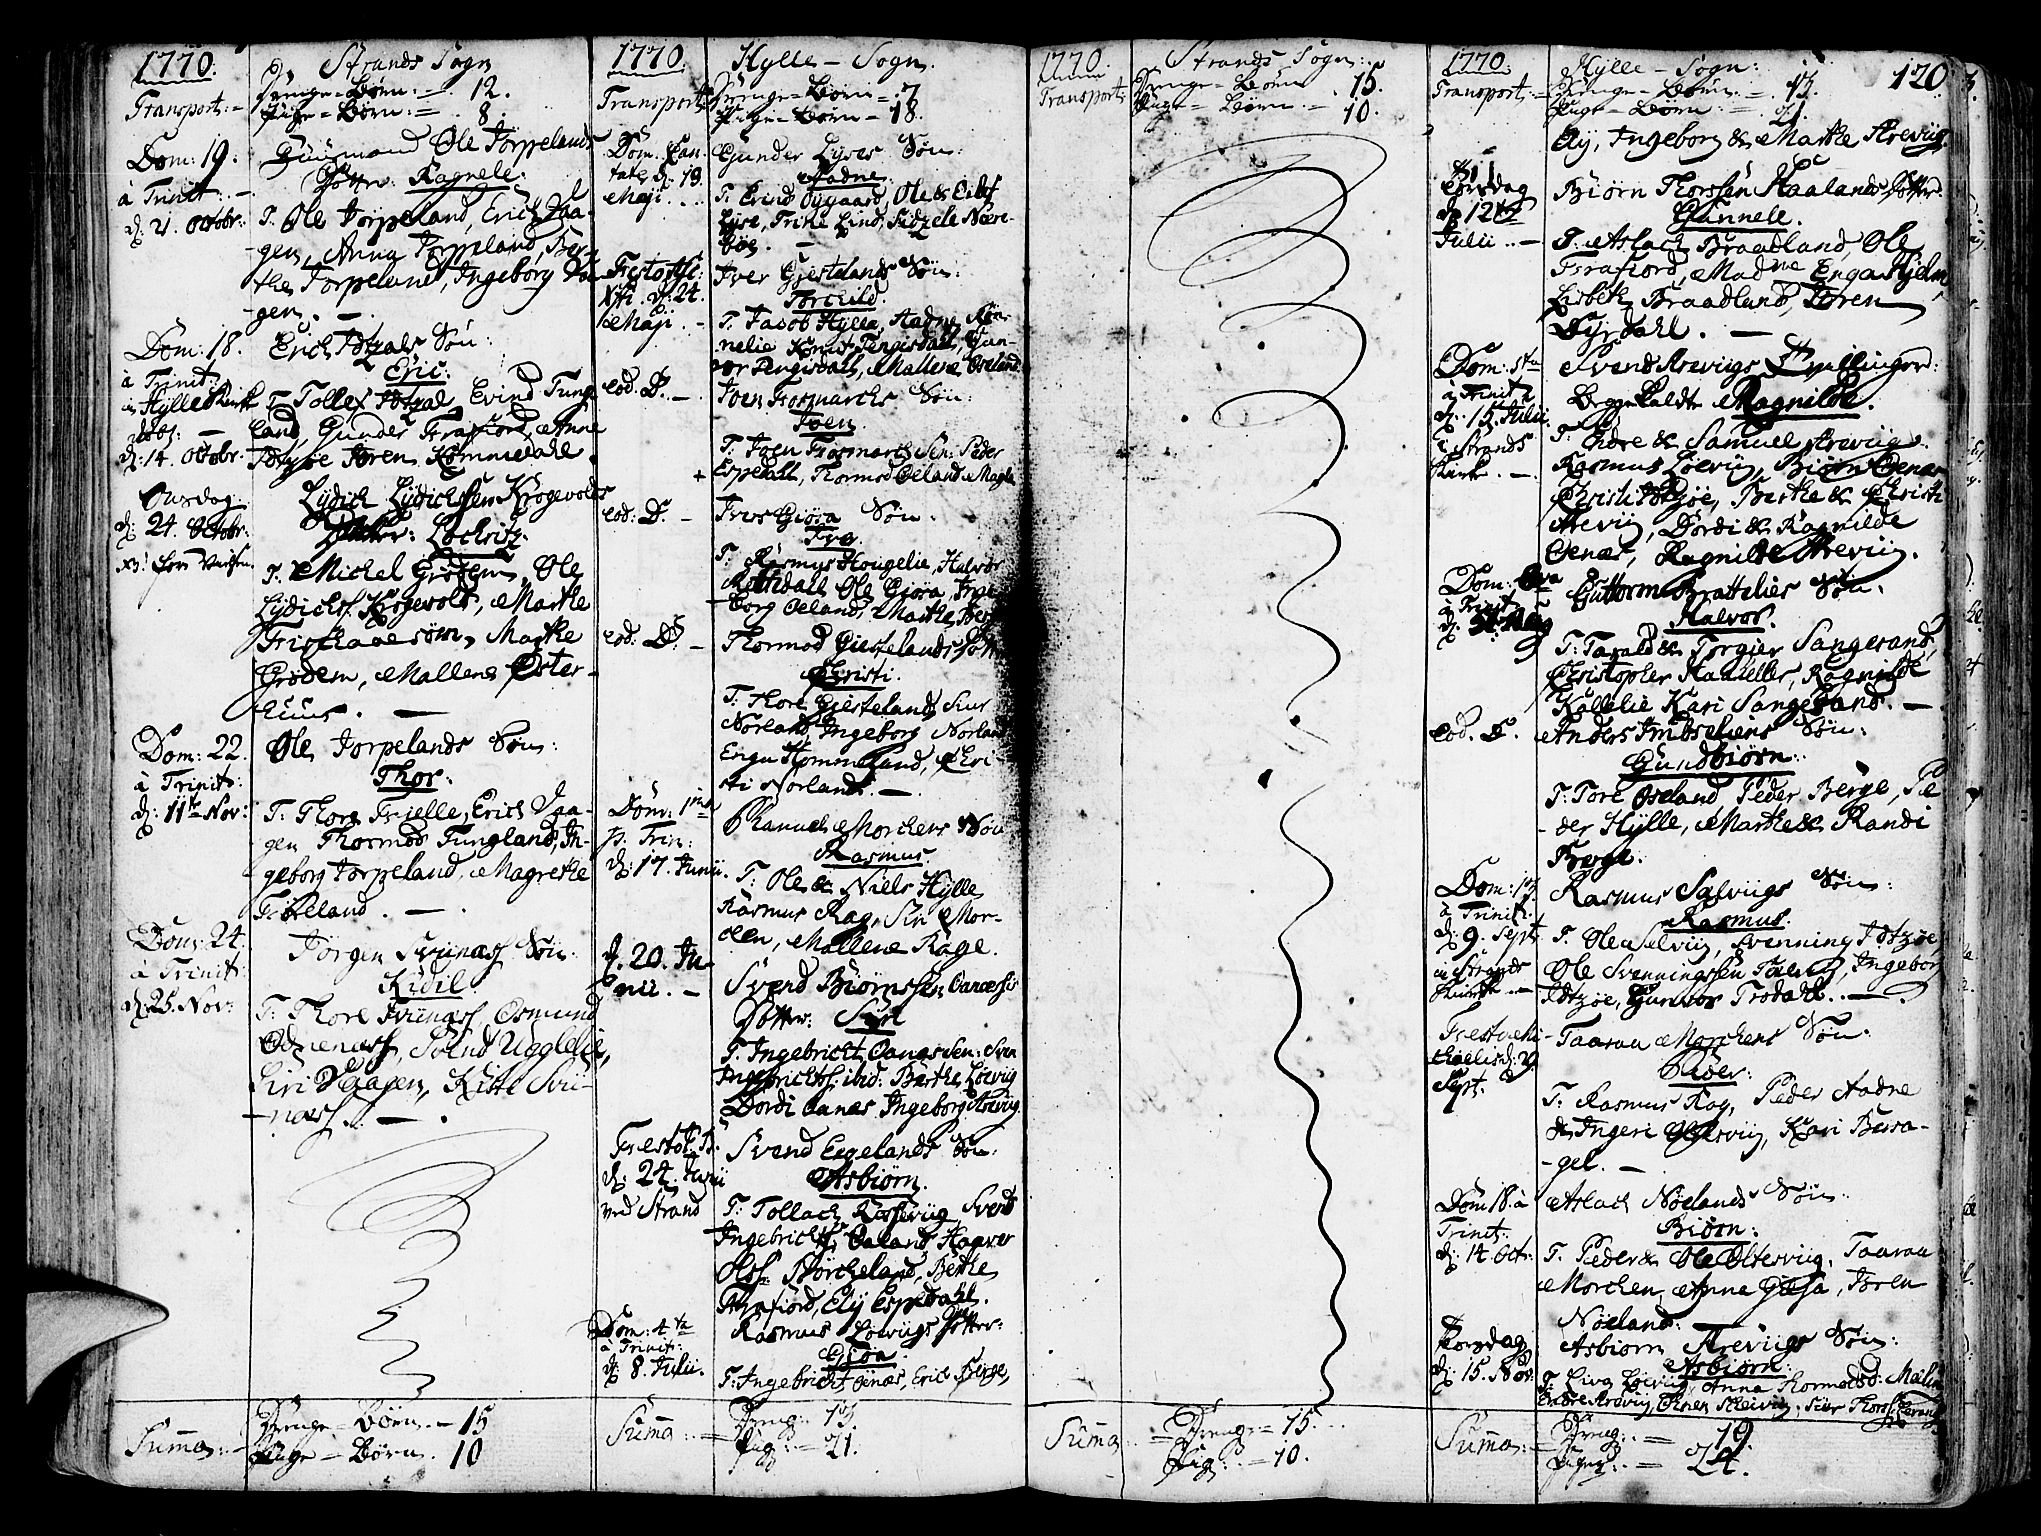 1770.
Strands Sogn
Transport:
Drenge-Børn: = 12.
Pige-Børn: = 8.
Dom: 19.
à Trinit:
d: 21. Octobr:
Huusmand Ole Torpelands
Dotter: Ragnele.
T. Ole Torpeland, Erich Haa-
gen, Anna Torpeland, Ber-
the Torpeland, Ingeborg Haa-
gen. —
Dom: 18.
à Trinit:
in Hylle Kirke
d: 14. Octobr:
Erich Idtzals Søn:
Eric.
T. Tollef Idtzal, Evind Tunge-
land, Gunder Frafiord, Anne
Idtzøe Toren Kommedahl.
Onsdag
d: 24. Octobr:
Lydich Lydichsen Krogevolds
Dotter:
T. Michel Grødem, Ole
Lydichs. Krogevold, Marthe
Marthe
Grødem, Mallene Øster-
huus. —
Dom: 22.
à Trinit:
d: 11te Nov:
Ole Torpelands Søn:
Thor:
T. Thore Fielle, Erich Haa-
gen Thormod Tungland, In-
geborg Torpeland, Magrethe
Fiskeland. —
Dom: 24.
à Trinit:
d: 25. Nov:
Jørgen Sviinæs Søn:
Kidil.
T. Thore Sviinæs, Osmund
Svend Ugglelie,
Siri Haagen, Kitte Svii-
næss. —
Summa:
Drenge-Børn. - 15
Pige-Børn. 10
1770.
Hylle-Sogn.
Transport:
Drenge-Børn = 7
Pige-Børn - 18.
Dom: Can-
tate d: 13.
Maji
Gunder Lyses Søn:
Aadne.
T. Evind Øygaard, Ole & Eilef
Lyse, Trine Lind, Sidzele Nære-
bøe. —
Festo Asc:
d: 24.
Maji
Iver Giestelands Søn:
Torchild.
T. Jacob Hylle, Aadne Røn-
nelie Knud Tengisdahl, Gun-
vor Tengisdahl, Mallene Oseland.
eod. D.
Joen Fosmarchs Søn:
Joen.
T. Joen Fosmarch Sen: Peder
Espedall, Thormod Øeland Magla
eod: D.
Ives Giøsa Søn:
Iva.
T. Rasmus Hougelie, Halvor
Ole Giøsa, Inge-
borg Øeland, Marthe
eod: D.
Thormod Giestelands Dotter
Christi.
T. Thore Giesteland, Siur
Norland, Ingeborg Norland
Enga Hommeland, Chri-
sti Norland. —
Dom: 1ma
p. Trin:
d: 17. Junii.
Phanuel Morchens Søn
Rasmus.
T. Ole & Niels Hylle
Rasmus Rag, Siri Mor-
chen, Mallene Rage.
d. 20. Ju-
nii. —
Svend Biørnssen Oanæssis
Dotter: Siri
T. Ingebricht Oanæs Sen: Sven
Ingebrichts: ibid: Barthe Løevig
Dordi Oanæs Ingeborg Arevig
Festo
d: 24. Junii
ved Strand
Svend Eegelands Søn:
Asbiørn.
T. Tollach Svend
Ingebrichts Øeland, Haaver
Ols. Biørcheland, Berthe
Frafiord, Elj Espedahl.
Dom: 4ta
à Trinit:
d: 8. Julii.
Rasmus Løeviigs Dotter:
Giøa
T. Ingebricht Øenæs, Erich Berge,
Summa:
Dreng: - 13
Pig: - 21.
1770.
Strands Sogn:
Transport:
Drenge-Børn . 15.
Pige-Børn 10.
Summa:
Dreng - 15.
Pig: - 10.
1770.
Hylle-Sogn:
120.
Transport:
Drenge-Børn. = 13.
Pige-Børn = 21.
Øy, Ingeborg & Marthe Areviig.
Torsdag
d: 12te
Julii —
Biørn Thorssen Haalands Dotter
Gunnele.
T. Aslach Braadland, Ole
Frafiord, Madne Enga Hielm,
Lisbeth Braadland, Toren
Dyrdahl. —
Dom: 5ta
à Trinit:
d: 15. Julii
i Strands
Kirke. —
Svend Areviigs Tvillinger:
Begge kaldte Ragnilde.
T. Endre & Samuel Areviig
Rasmus Løeviig, Biørn Øenæs
Christi Idtzøe, Barthe & Christi
Areviig, Dordi & Ragnilde
Øenæs, Ragnilde Areviig.
Dom:
à Trinit:
Guttorm Brattelies Søn:
Halvor.
T. Tarald & Torgier Sangesand,
Christopher Ragnilde
Kallelie Kari Sangesand. —
eod. D.
Anders Imbseliens Søn:
Gundbiørn.
T. Tore Oseland, Peder Berge, Pe-
der Hylle, Marthe & Randi
Berge.
Dom: 13.
à Trinit.
d: 9. Sept.
in Strands
Kirke —
Rasmus Salviigs Søn:
Rasmus.
T. Ole Selviig, Svenning Idtzøe,
Ole Svenningssen Ingeborg
Idtzøe, Gunvor Trodahl. —
Festo Mi-
chaelis d: 29.
Sept.
Taaraa Morchens Søn:
Peder:
T. Rasmus Rag, Peder Aadne
& Ingeri Oltesviig, Kari Bersa-
gel. —
Dom 18. à
Trinit:
d: 14 Oct:
Aslach Nøelands Søn:
Biørn:
T. Peder & Ole Oltesviig, Taaraa
Morchen, Anna Giøsa, Toren
Nøeland.
Torsdag
d: 15. Nov.
Asbiørn Areviigs Søn:
Asbiørn.
T. Siva Løeviig, Anna Thormodsd: Malin
Endre Areviig,
Summa:
Dreng: = 19.
Piger: = 24.